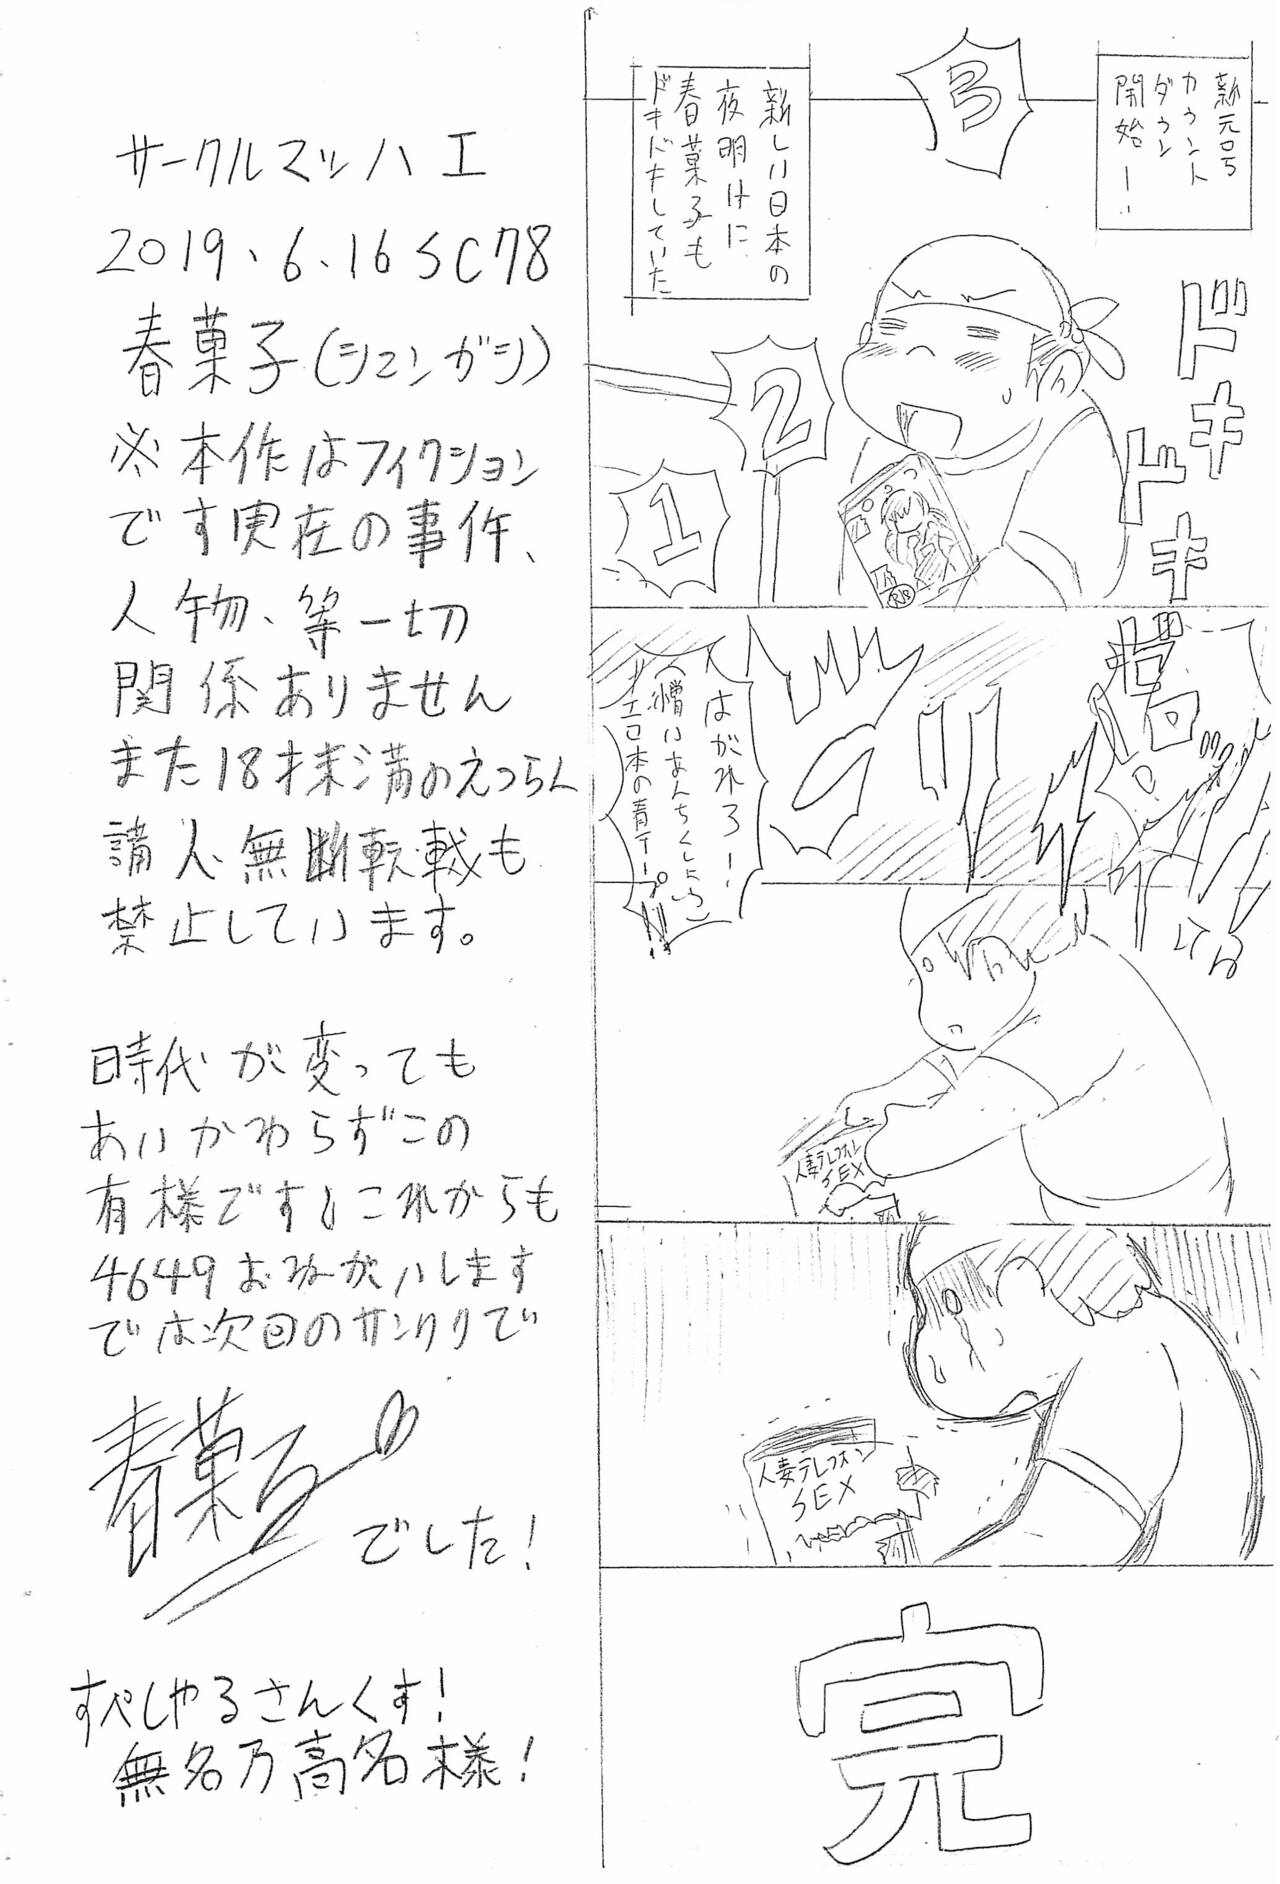 新元号
カウント
ダウン
開始ー!!
3
新しい日本の
夜明けに
春菓子も
ドキドキしていた
ドキ
ドキ
2
1
はがれろー!
(憎いあんちくしょう)
エロ本の青テープ!!
人妻テレフォン
SEX
人妻テレフォン
SEX
完
サークルマッハ工
2019、6、16 SC78
春菓子(シュンガシ)
※本作はフィクション
です実在の事件、
人物、等一切
関係ありません
また18才未満のえつらん
購入、無断転載も
禁止しています。
時代が変っても
あいかわらずこの
有様です!これからも
4649おねがいします
では次回のサンクリで
春菓子
でした!
すぺしゃるさんくす!
無名乃高名様!